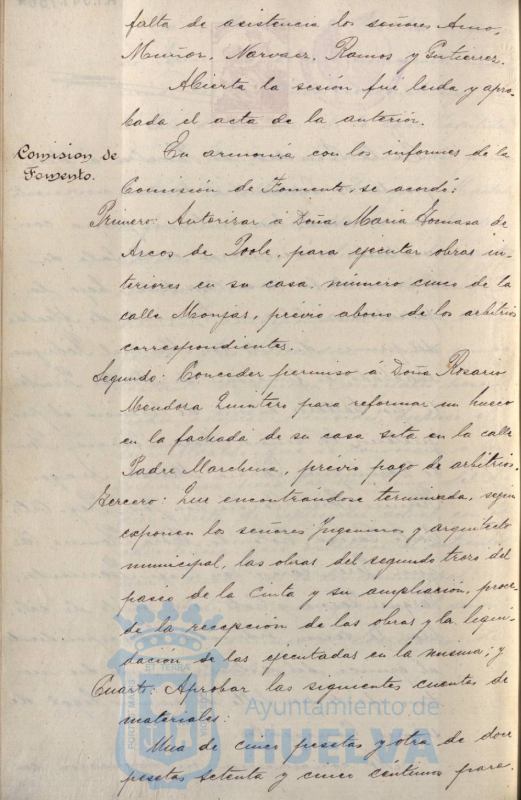 falta de asistencia los señores Amo,
Muñoz, Narvaez, Ramos y Gutierrez.
Abierta la sesión fué leida y apro-
bada el acta de la anterior.
Comision de
Fomento.
En armonia con los informes de la
Comisión de Fomento, se acordó:
Primero: Autorizar á Doña Maria Tomasa de
Arcos de Poole, para ejecutar obras in-
teriores en su casa número cinco de la
calle Monjas, previo abono de los arbitrios
correspondientes.
Segundo: Conceder permiso á Doña Rosario
Mendoza Quintero para reformar un hueco
en la fachada de su casa sita en la calle
Padre Marchena, previo pago de arbitrios.
Tercero: Que encontrándose terminada, segun
exponen los señores Ingeniero y arquitecto
municipal, las obras del segundo trozo del
paseo de la Cinta y su ampliación, proce-
de la recepción de las obras y la liqui-
dación de las ejecutadas en la misma; y
Cuarto: Aprobar las siguientes cuentas de
materiales:
Una de cinco pesetas y otra de doce
pesetas setenta y cinco céntimos para
Ayuntamiento de
HUELVA